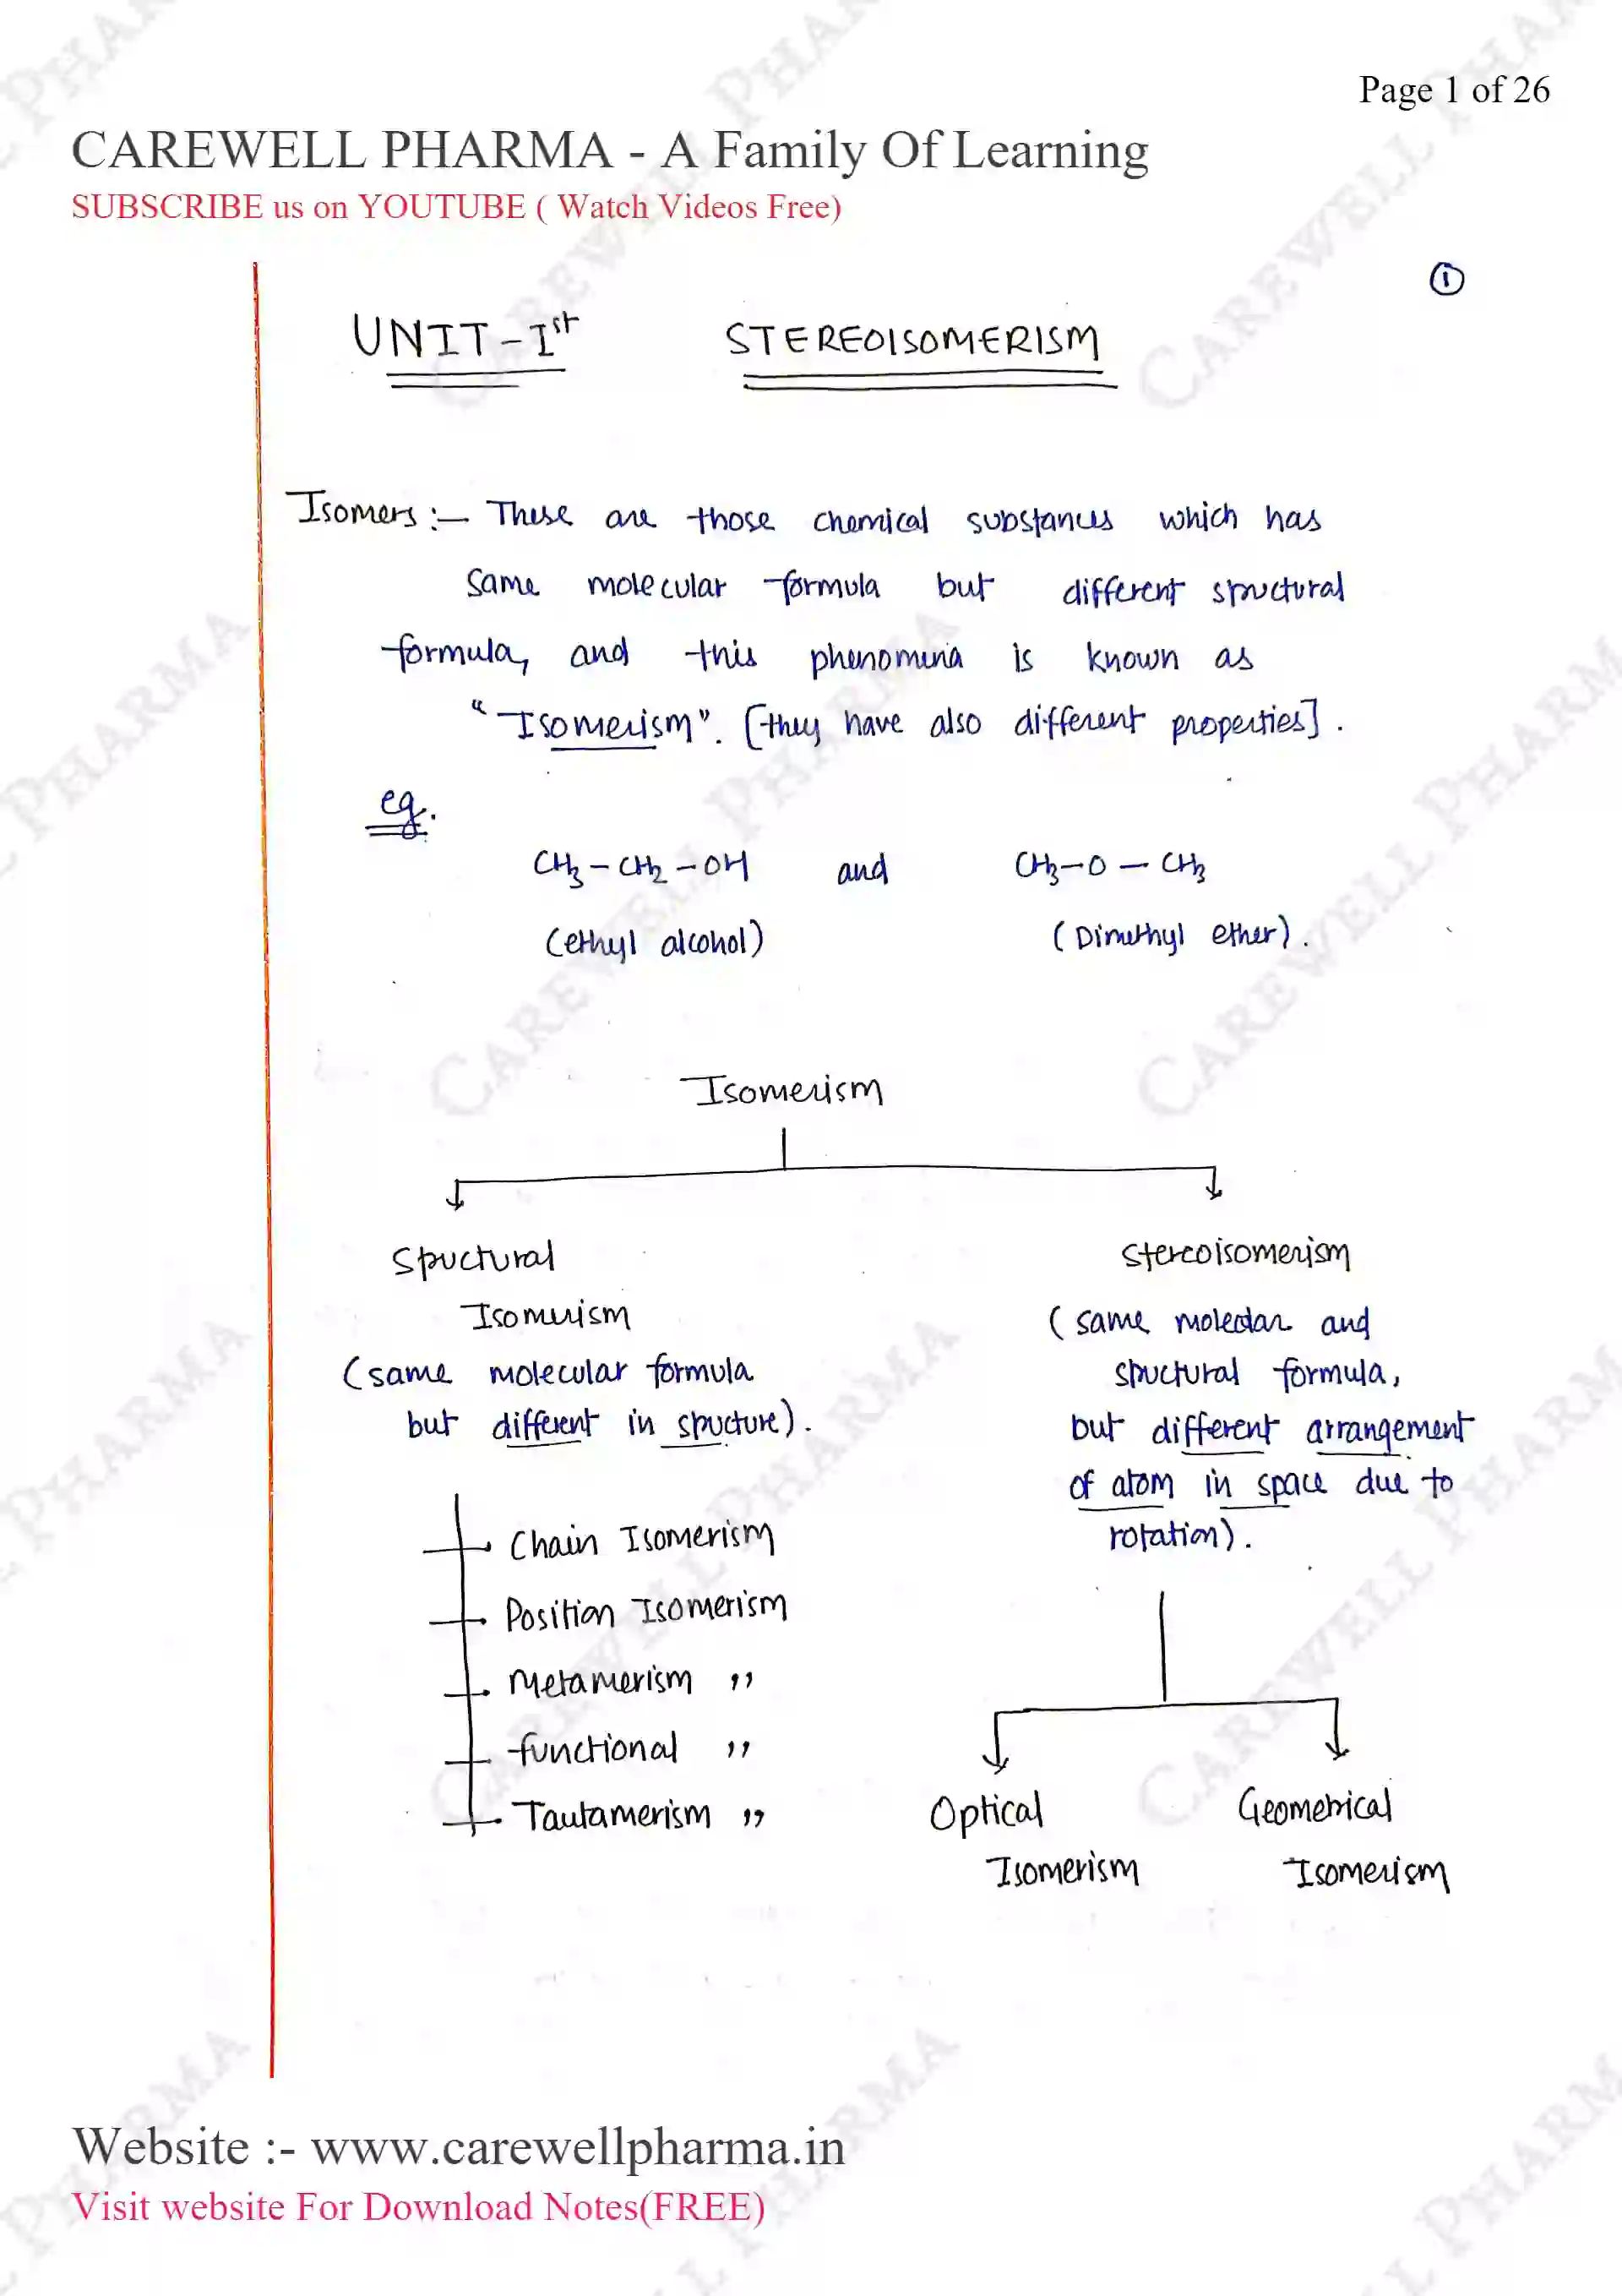 Page 1 of 26
CAREWELL PHARMA - A Family Of Learning
SUBSCRIBE us on YOUTUBE ( Watch Videos Free)
1
UNIT-Ist STEREOISOMERISM
Isomers :- These are those chemical substances which has
same molecular formula but different structural
formula, and this phenomina is known as
"Isomerism". [they have also different properties].
eg.
CH3-CH2-OH and CH3-O-CH3
(ethyl alcohol) (Dimethyl ether).
Isomerism
Structural Isomerism
(same molecular formula
but different in structure).
Chain Isomerism
Position Isomerism
Metamerism ,,
functional ,,
Tautamerism ,,
stereoisomerism
(same molecular and
structural formula,
but different arrangement
of atom in space due to
rotation).
Optical Isomerism
Geometrical Isomerism
Website :- www.carewellpharma.in
Visit website For Download Notes(FREE)
CAREWELL PHARMA